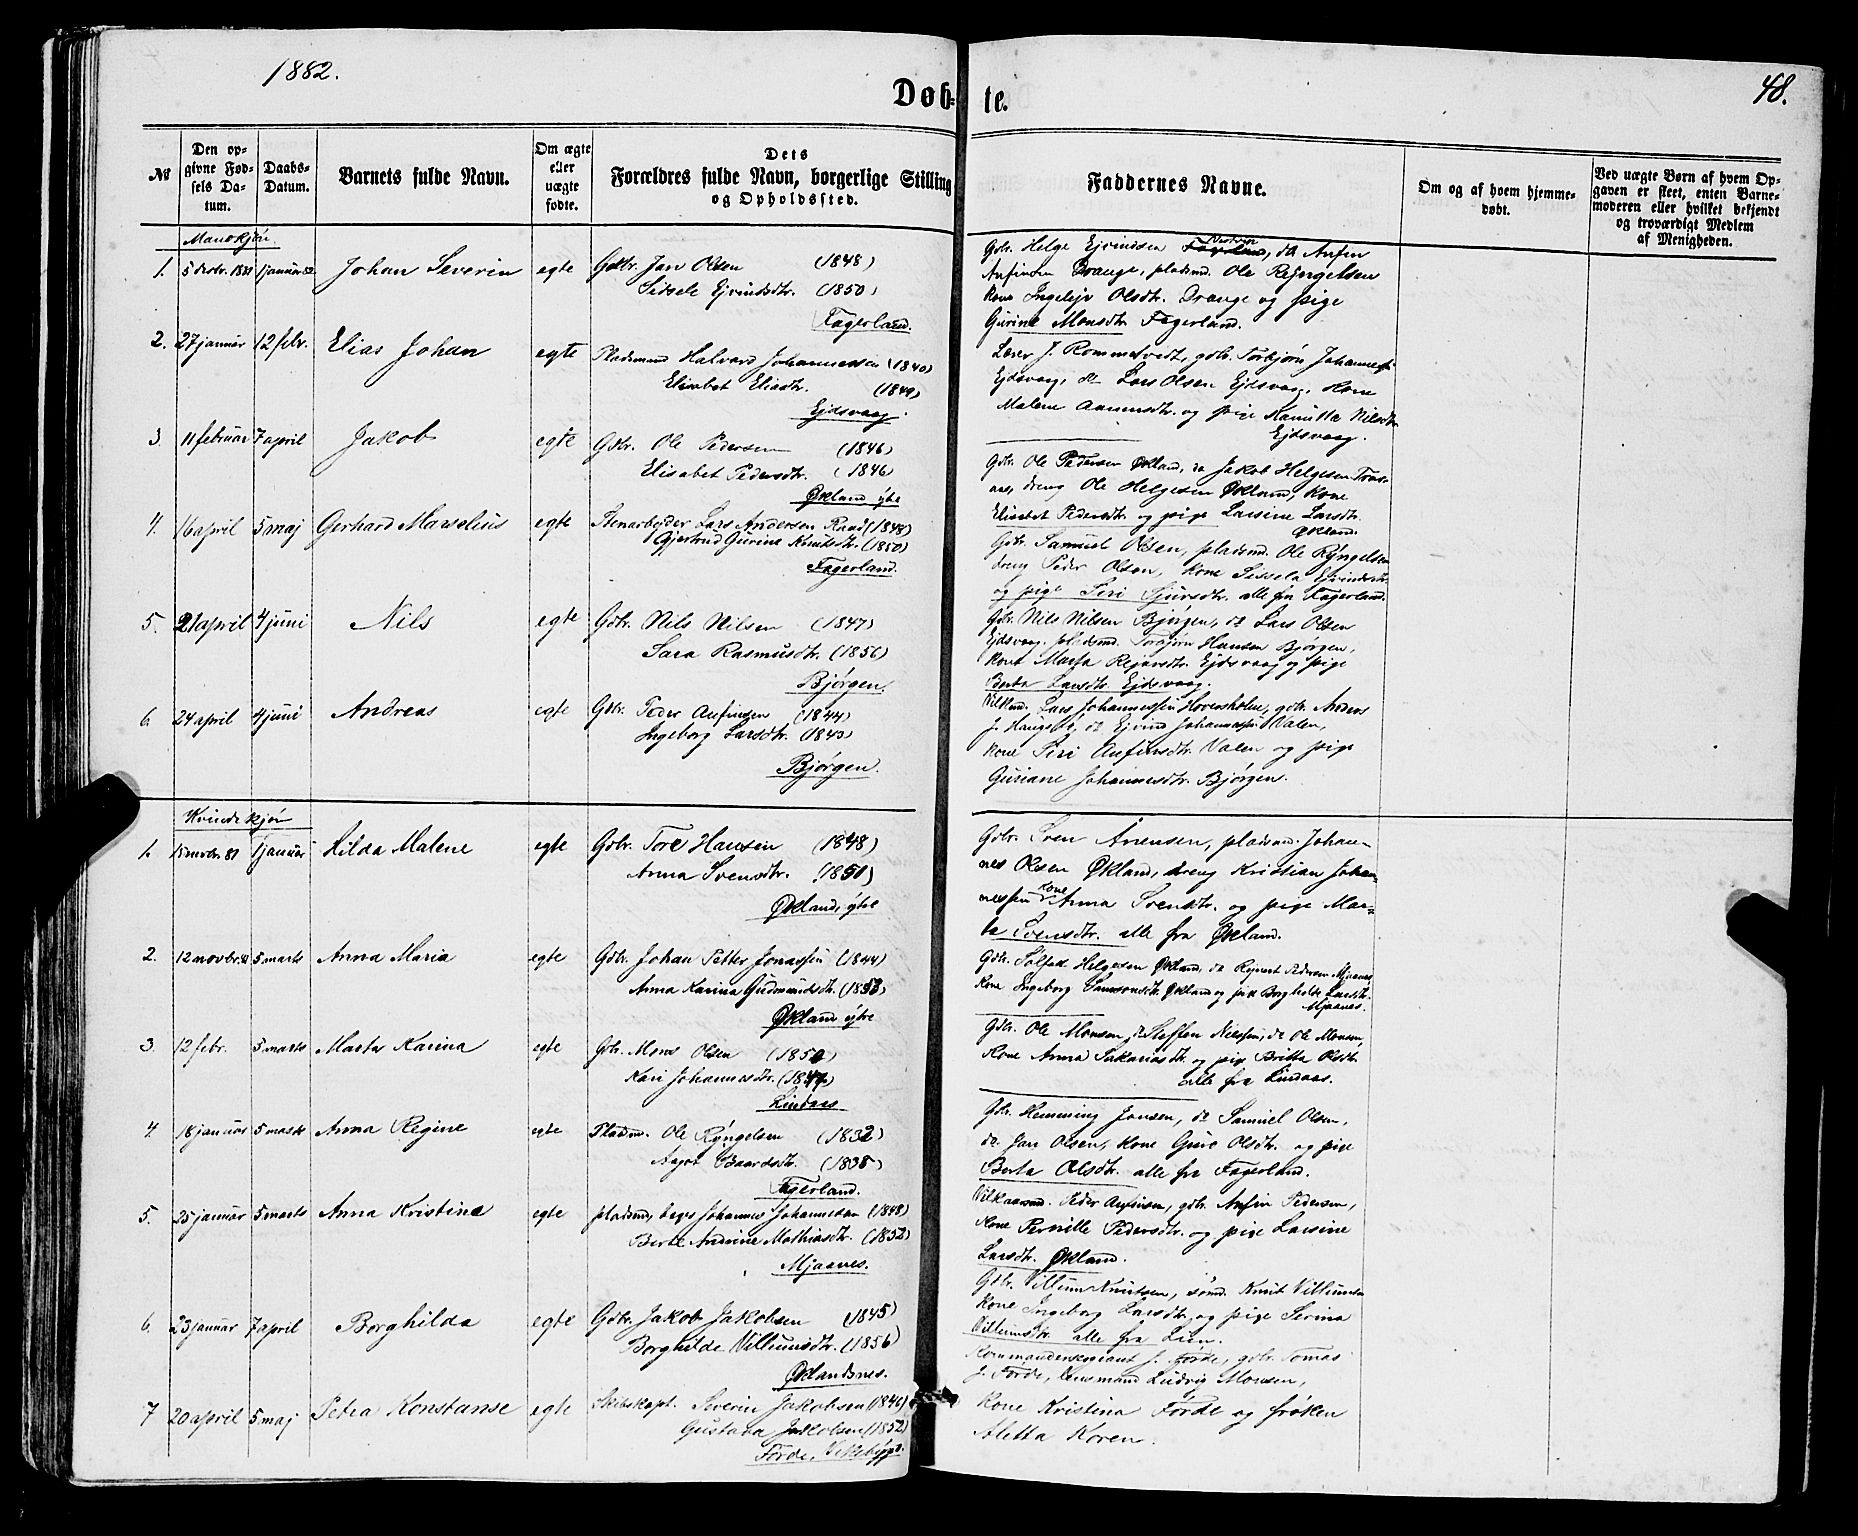 1882.
48.
Døb-
te.
№
Den op-
givne Fød-
sels Da-
tum.
Daabs-
Datum.
Barnets fulde Navn.
Om ægte
eller
uægte
fødte.
Dets
Forældres fulde Navn, borgerlige Stilling
og Opholdssted.
Faddernes Navne.
Om og af hvem hjemme-
døbt.
Ved uægte Børn af hvem Op-
gaven er skeet, enten Barne-
moderen eller hvilket bekjendt
og troværdigt Medlem
af Menigheden.
Mandkjøn
1. 5 decbr. 1881 1 januar 82 Johan Severin egte Gdbr. Jan Olsen (1848)
Sidsele Ejvindsdtr. (1850)
Fagerland.
Gdbr. Helge Ejvindsen, do Anfin
Anfinsen Drange, pladsmd. Ole Ryngelsen
Kone Ingelejv Olsdtr. Drange og pige
Gurine Monsdtr. Fagerland.
2. 27 januar 12 febr. Elias Johan egte Pladsmand Halvard Johannessen (1840)
Elisabet Eliasdtr. (1849)
Ejdsvaag.
Lærer J. Rommetvedt, gdbr. Torbjørn Johanness.
Ejdsvaag, do Lars Olsen Ejdsvaag, Kone
Malene Aamunsdtr. og pige Kanutta Nilsdtr.
Ejdsvaag.
3. 11 februar 7 april Jakob egte Gdbr. Ole Pedersen (1846)
Elisabet Pedersdtr. (1846)
Økland ytre
Gdbr. Ole Pedersen Økland, do Jakob Helgesen
dreng Ole Helgesen Økland, Kone
Elisabet Pedersdtr. og pige Larsine Larsdtr.
Økland.
4. 16 april 5 maj Gerhard Marselius egte Stenarbejder Lars Andersen Raad (1848)
Gjertrud Gurine Knutsdtr. (1850)
Fagerland.
Gdbr. Samuel Olsen, pladsmd. Ole Ryngelsen
dreng Peder Olsen, Kone Sissela Ejvindsdtr.
og pige Siri Sjursdtr. alle fra Fagerland.
5. 21 april 4 juni Nils egte Gdbr. Nils Nilsen (1847)
Sara Rasmusdtr. (1856)
Bjørgen.
Gdbr. Nils Nilsen Bjørgen, do Lars Olsen
Ejdsvaag, pladsmd. Torbjørn Hansen Bjørgen,
Kone Marta Rejarsdtr. Ejdsvaag og pige
Berta Larsdtr. Ejdsvaag.
6. 24 april 4 juni Andreas egte Gdbr. Peder Anfinsen (1844)
Ingeborg Larsdtr. (1843)
Bjørgen.
Vilkmd. Lars Johannessen Hoversholm, gdbr. Anders
J. Haugsbø, do Ejvind Johannessen Valen,
Kone Siri Anfinsdtr. Valen og pige
Guriane Johannesdtr. Bjørgen.
Kvindekjøn
1. 15 novbr. 81 1 januar Hilda Malene egte Gdbr. Tore Hansen (1848)
Anna Svensdtr. (1851)
Økland, ytre
Gdbr. Sven Ånensen, pladsmd. Johan-
nes Olsen Økland, dreng Kristian Johan-
nessen Kone Anna Svensdtr. og pige Mar-
ta Svensdtr. alle fra Økland.
2. 12 novbr. 5 marts Anna Maria egte Gdbr. Johan Petter Jonassen (1844)
Anna Karina Gudmundsdtr. (1853)
Økland ytre
Gdbr. Salfest Helgesen Økland, do Rejnert Pedersen Mjaanes
Kone Ingeborg Samsonsdtr. Økland og pige Borghilde Larsdtr.
Mjaanes.
3. 12 febr. 5 marts Marta Karina egte Gdbr. Mons Olsen (1850)
Kari Johannesdtr. (1847)
Lindaas
Gdbr. Ole Monsen, do Steffen Nilssen, do Ole Monsen,
Kone Anna Sakariasdtr. og pige Britta Olsdtr.
alle fra Lindaas.
4. 18 januar 5 marts Anna Regine egte Pladsm. Ole Ryngelsen (1832)
Aagot Baardsdtr. (1838)
Fagerland.
Gdbr. Hemming Jansen, do Samuel Olsen,
do Jan Olsen, Kone Guro Olsdtr. og pige
Berta Olsdtr. alle fra Fagerland.
5. 25 januar 5 marts Anna Kristine egte pladsmd. Johannes Johannessen (1848)
Berte Andrine Mathiasdtr. (1852)
Mjaanes.
Vilkaarsmd. Peder Anfinsen, gdbr. Anfin Pedersen,
Kone Pernille Pedersdtr. og pige Larsine
Larsdtr. Økland.
6. 23 januar 7 april Borghilda egte Gdbr. Jakob Jakobsen (1845)
Borghilde Villumsdtr. (1856)
Øklandsnes.
Gdbr. Villum Knutsen, sømd. Knut Villumsen
Kone Ingeborg Larsdtr. og pige Serina
Villumsdtr. alle fra Lien.
7 20 april 5 maj Petra Konstanse egte Skibskapt. Severin Jakobsen (1846)
Gustava Jakobsen (1852)
Førde, Vikebygd.
Kommandersergiant J. Førde, gdbr. Tomas
J. Førde, Lensmand Ludvig Monsen,
Kone Kristina Førde og frøken
Aletta Koren.